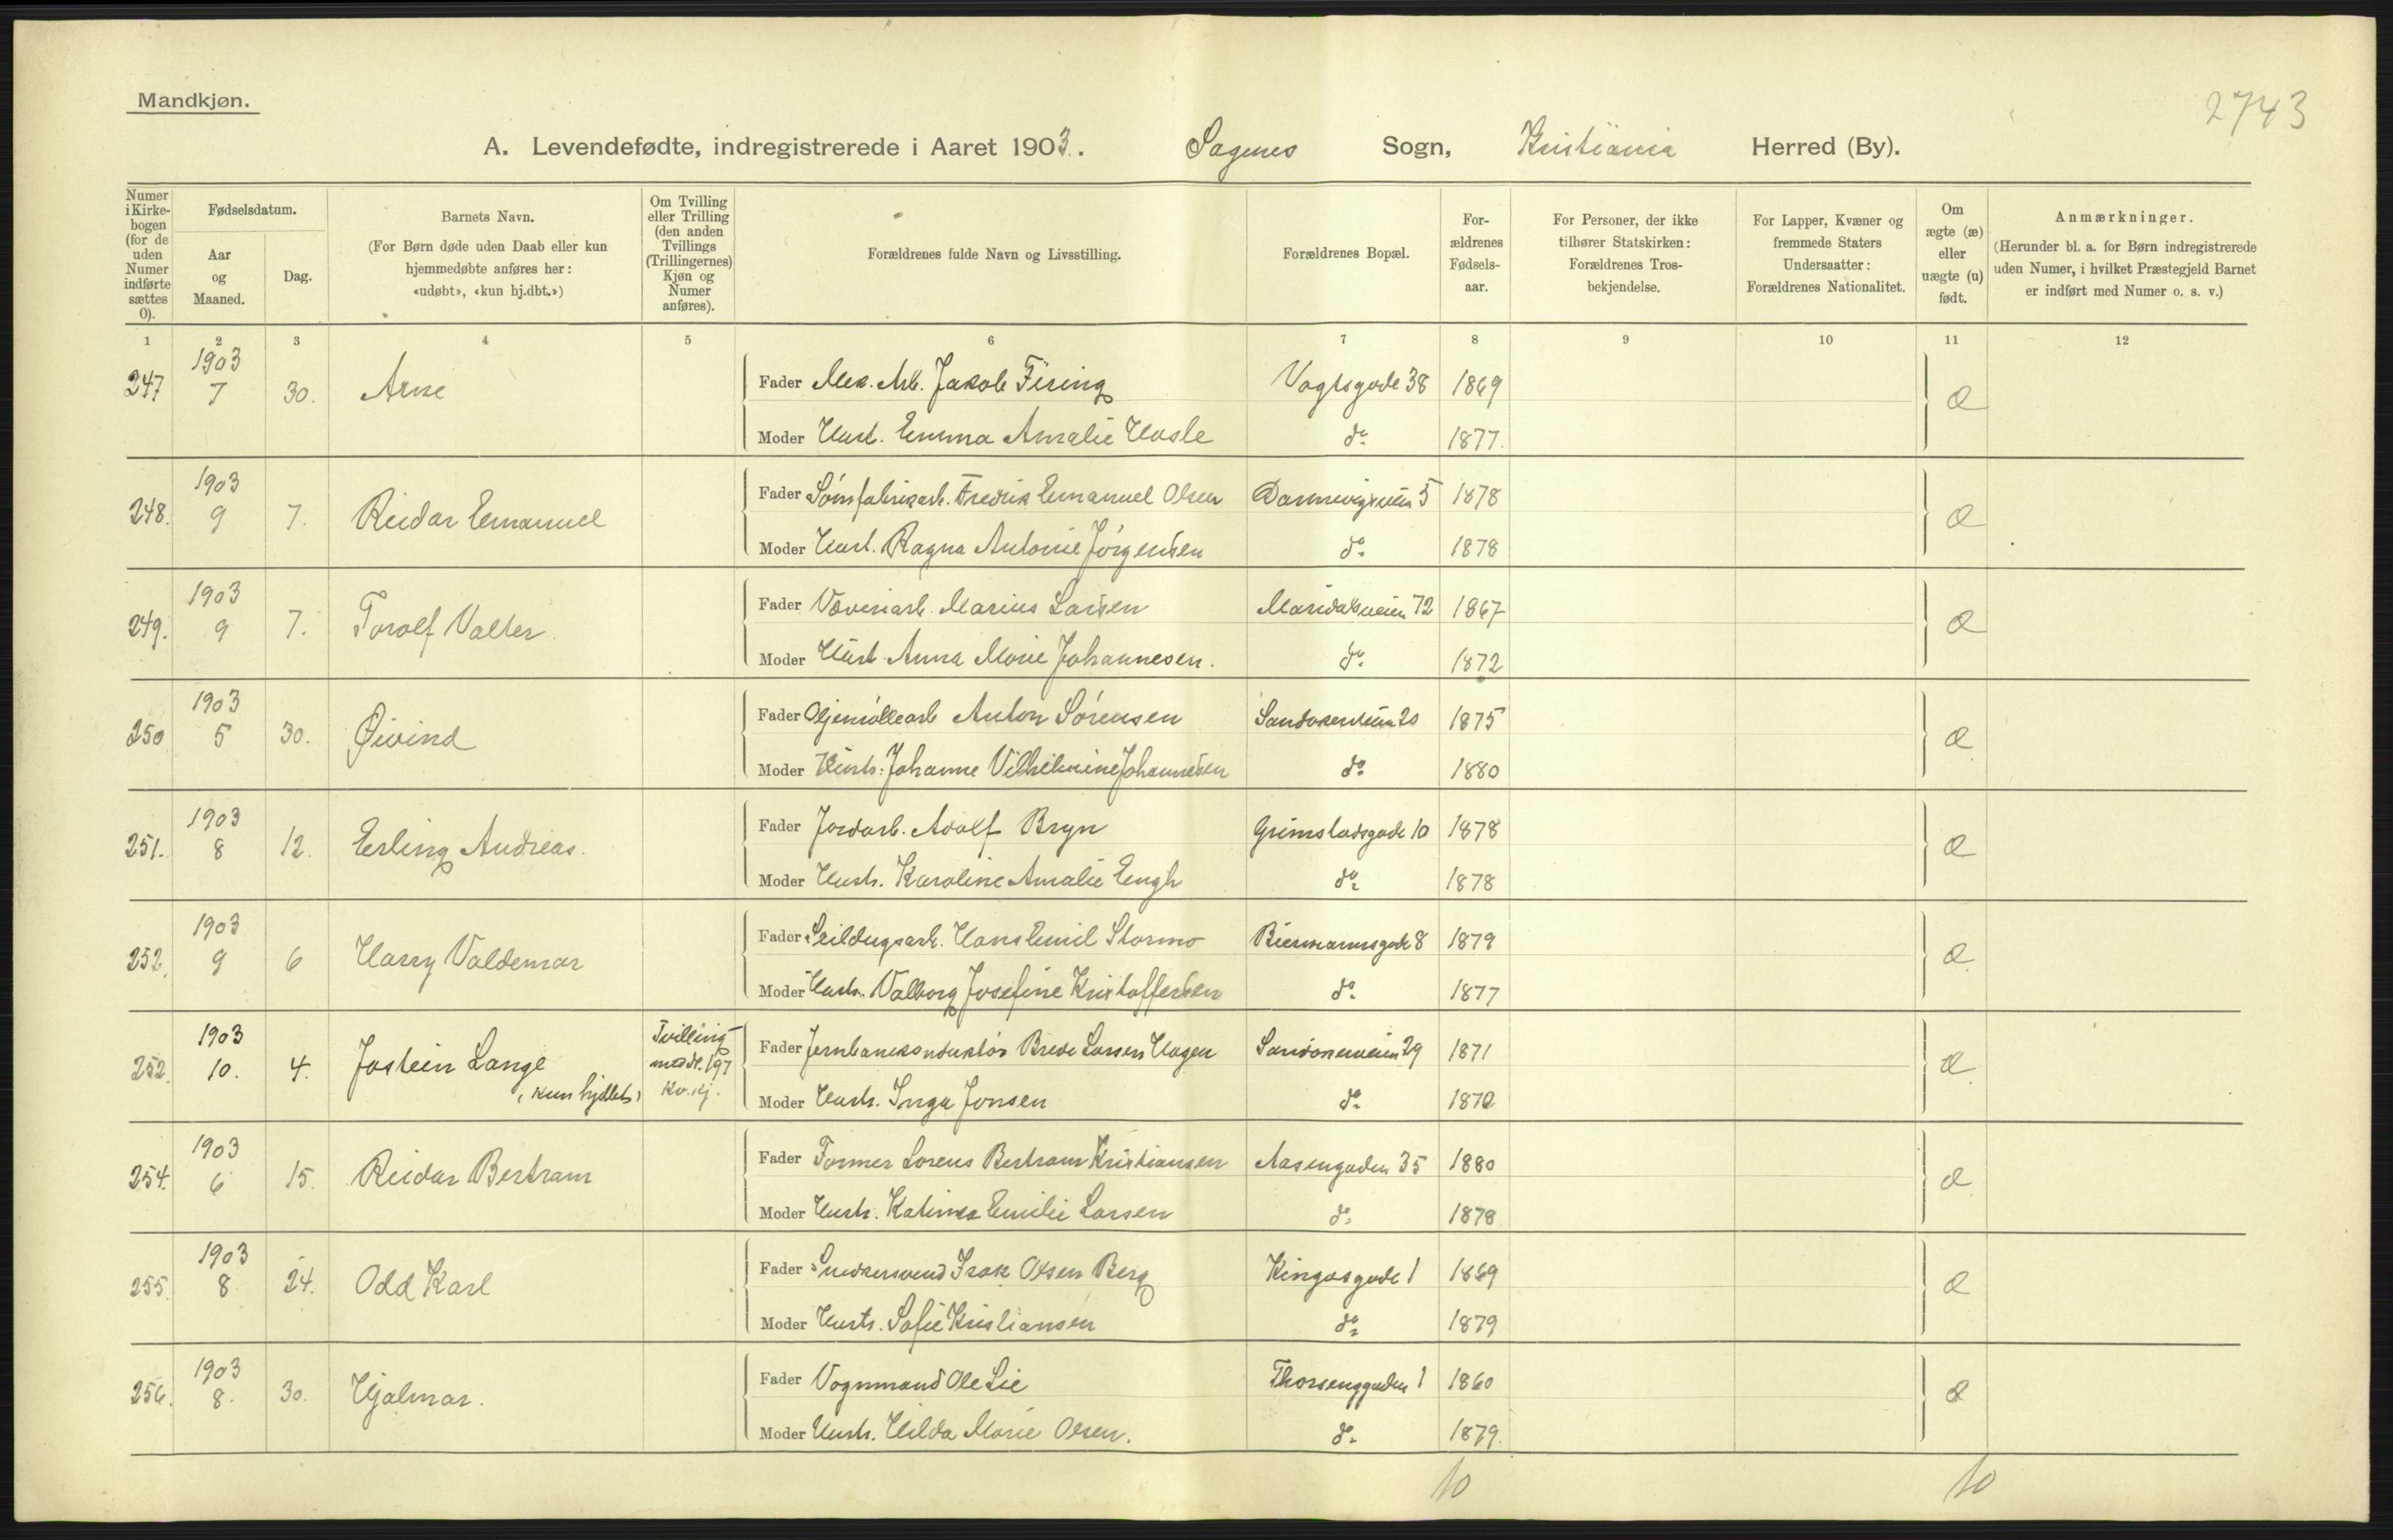 Mandkjøn.
2743
A. Levendefødte, indregistrerede i Aaret 1903. Sagenes Sogn, Kristiania Herred (By).
Numer i Kirkebogen (for de uden Numer indførte sættes 0).
Fødselsdatum.
Aar og Maaned.
Dag.
Barnets Navn.
(For Børn døde uden Daab eller kun hjemmedøbte anføres her: «udøbt», «kun hj.dbt.»)
Om Tvilling eller Trilling (den anden Tvillings (Trillingernes) Kjøn og Numer anføres).
Forældrenes fulde Navn og Livsstilling.
Forældrenes Bopæl.
Forældrenes Fødselsaar.
For Personer, der ikke tilhører Statskirken: Forældrenes Trosbekjendelse.
For Lapper, Kvæner og fremmede Staters Undersaatter: Forældrenes Nationalitet.
Om ægte (æ) eller uægte (u) født.
Anmærkninger.
(Herunder bl. a. for Børn indregistrerede uden Numer, i hvilket Præstegjeld Barnet er indført med Numer o. s. v.)
1 2 3 4 5 6 7 8 9 10 11 12
247 1903 7 30. Arne Fader Mek. Arb. Jakob Fising Vogtsgade 38 1869 æ
Moder Hust. Emma Amalie Hasle do 1877.
248. 1903 9 7. Reidar Emanuel Fader Sømfabrikarb. Fredrik Emanuel Olsen 5 1878 æ
Moder Hust. Ragna Antonie Jørgensen do 1878
249. 1903 9 7. Torolf Valter Fader Væveriarb. Marius Larsen Maridalsveien 72 1867 æ
Moder Hust. Anna Marie Johannesen. do 1872
250 1903 5 30. Øivind Fader Oljemøllearb Anton Sørensen Sandakerveien 20 1875 æ
Moder Hustr. Johanne Vilhelmine Johannesen do 1880
251. 1903 8 12. Erling Andreas. Fader Jordarb. Adolf Bryn Grimstadsgade 10 1878 æ
Moder Hustr. Karoline Amalie Engh do 1878
252. 1903 9 6 Harry Valdemar Fader Seildugsarb. Hans Emil Stormo Biermannsgade 8 1879 æ
Moder Hustr. Valborg Josefine Kristoffersen do 1877
252. 1903 10. 4. Jostein Lange (kun hjdbt) Tvilling med N. 197 Kv.kj. Fader Jernbanekonduktør Brede Larsen Hagen Sandakerveien 29 1871 æ
Moder Hustr. Inga Jonsen do 1872
254. 1903 6 15. Reidar Bertram Fader Former Lorens Bertram Kristiansen Aasengaden 35 1880 æ
Moder Hustr. Katinka Emilie Larsen do 1878
255. 1903 8 24. Odd Karl Fader Snedkersvend Isak Olsen Berg Kingosgade 1 1869 æ
Moder Hustr. Sofie Kristiansen do 1879
256. 1903 8. 30. Hjalmar. Fader Vognmand Ole Lie Thorsenggaden 1 1860 æ
Moder Hustr. Hilda Marie Olsen. do 1879.
10 10